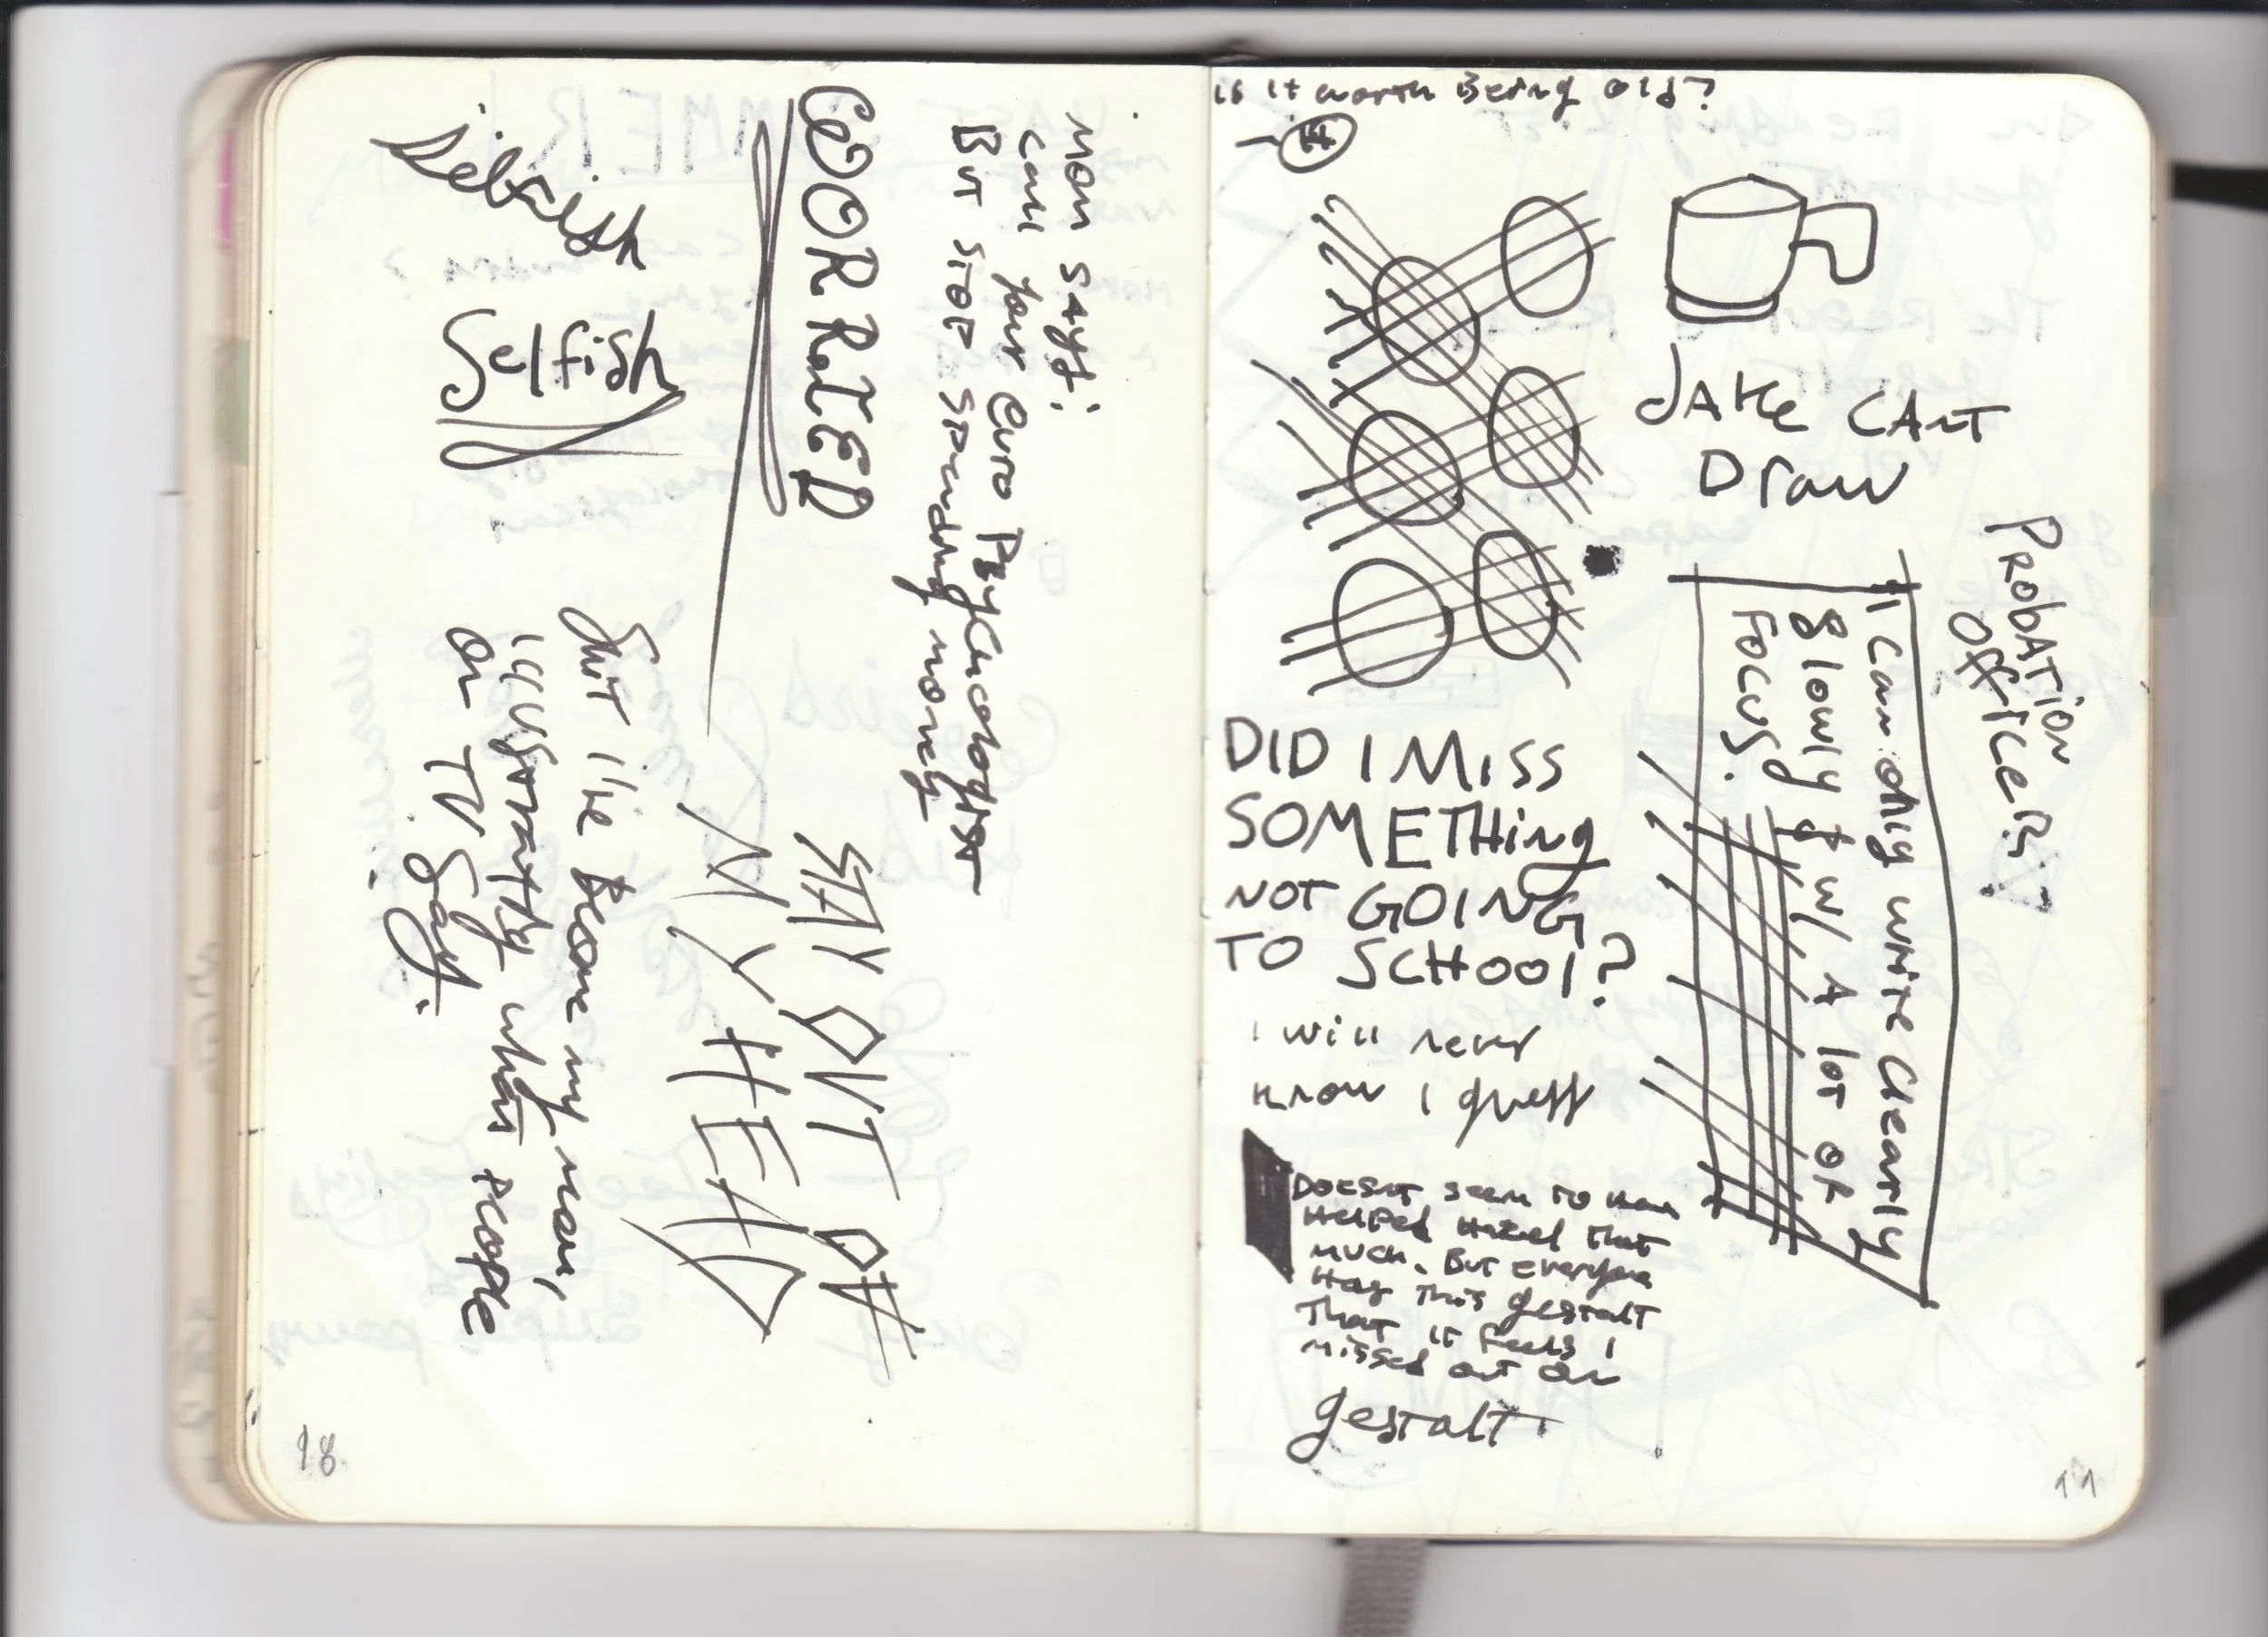 MOM SAYS:
CALL YOUR
BUT STOP SPENDING MONEY
Selfish
Selfish
STAY OUT OF
MY HEAD
Shit I've Become my mom,
on TV Say.
18
is it worth Being old?
JAKE CAn't
Draw
PROBATION
OFFICER
I can only write clearly
Slowly & w/ A lot of
FOCUS.
DID I MISS
SOMETHing
NOT GOING
TO SCHOOl?
I will never
know I guess
DOESNT seem TO Have
HELPED Hazel that
MUCH. BUT everyone
Has this gestalt
THAT it feels I
missed out on
gestalt.